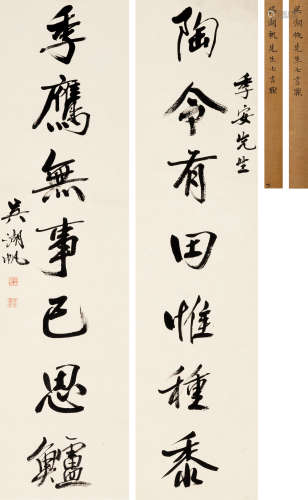 陶令有田惟種黍
季安先生
季鷹無事已思鱸
吳湖帆
吳湖帆先生七言聯
吳湖帆先生七言聯